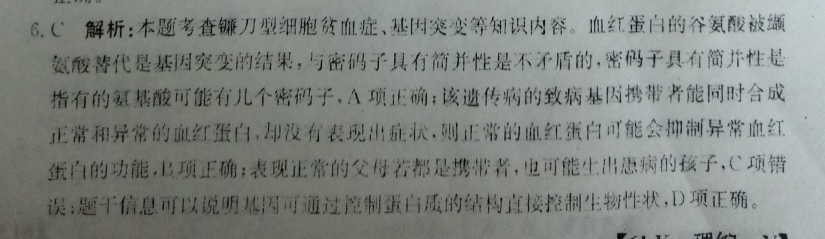 6. C 解析:本题考查镰刀型细胞贫血症、基因突变等知识内容。血红蛋白的谷氨酸被缬
氨酸替代是基因突变的结果,与密码子具有简并性是不矛盾的,密码子具有简并性是
指有的氨基酸可能有几个密码子,A 项正确;该遗传病的致病基因携带者能同时合成
正常和异常的血红蛋白,却没有表现出症状,则正常的血红蛋白可能会抑制异常血红
蛋白的功能,B项正确;表现正常的父母若都是携带者,也可能生出患病的孩子,C 项错
误;题干信息可以说明基因可通过控制蛋白质的结构直接控制生物性状,D 项正确。